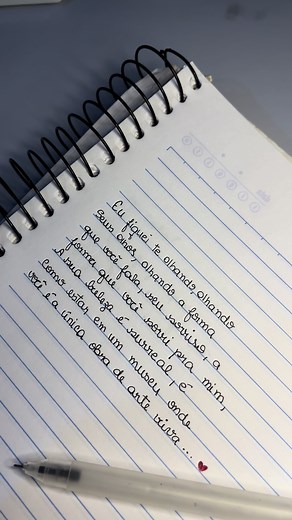 Eu fiquei te olhando, olhando
seus olhos, olhando a forma
que você fala, seu sorriso, a
forma que você sorri pra mim,
a sua beleza é surreal, é
como estar em um museu onde
você é a única obra de arte viva...